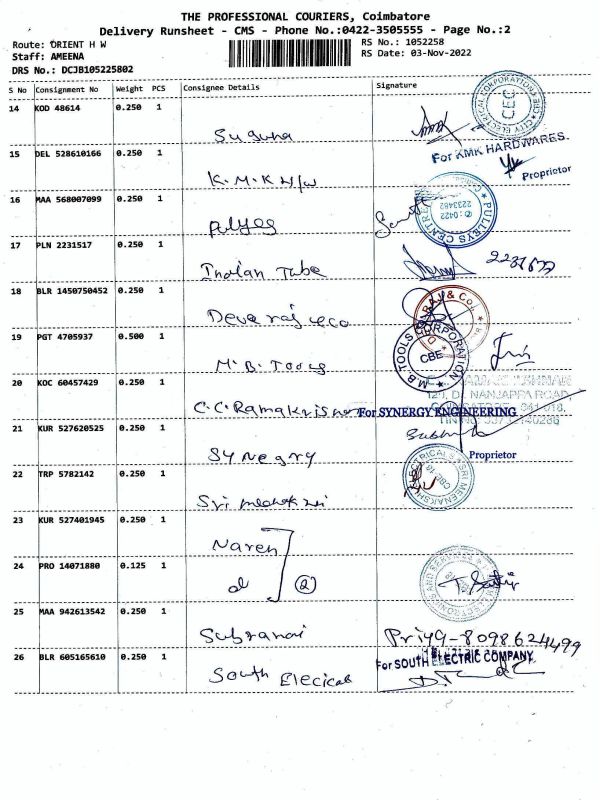 THE PROFESSIONAL COURIERS, Coimbatore
Delivery Runsheet - CMS - Phone No.:0422-3505555 - Page No.:2
Route: ORIENT H W
RS No.: 1052258
Staff: AMEENA
RS Date: 03-Nov-2022
DRS No.: DCJB105225802
S No Consignment No Weight PCS Consignee Details Signature
14 KOD 48614 0.250 1
Suguna
CITY ELECTRICAL CORPORATION CEC
15 DEL 528610166 0.250 1
For KMK HARDWARES
Proprietor
K.M.K H/w
16 MAA 568007099 0.250 1
PULLEYS CENTRE
✆: 0422
2233482
17 PLN 2231517 0.250 1
Indian Tube
18 BLR 1450750452 0.250 1
Devaraj &co
RAJ & Co.
19 PGT 4705937 0.500 1
M.B. Tools
M.B. TOOLS CORPORATION
CBE
20 KOC 60457429 0.250 1
NANJAPPA ROAD,
C.C. Ramakrishna
For SYNERGY ENGINEERING
21 KUR 527620525 0.250 1
Proprietor
Synegry
22 TRP 5782142 0.250 1
Sri
23 KUR 527401945 0.250 1
Naren
24 PRO 14071880 0.125 1
②
25 MAA 942613542 0.250 1
Priya-8098624499
26 BLR 605165610 0.250 1
For SOUTH ELECTRIC COMPANY
South Elecical